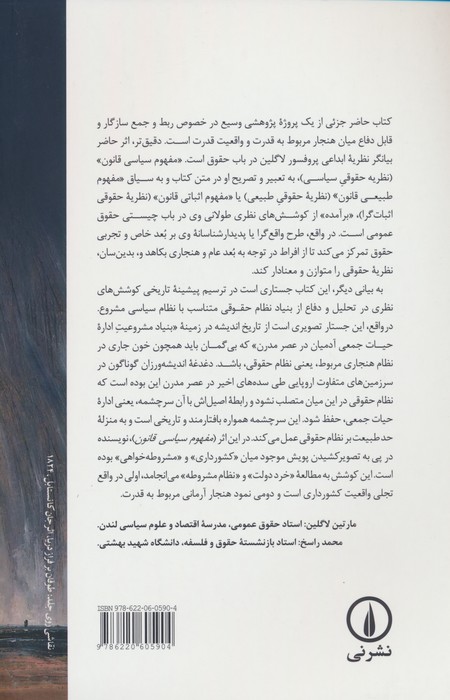 کتاب حاضر جزئی از یک پروژهٔ پژوهشی وسیع در خصوص ربط و جمع سازگار و
قابل دفاع میان هنجار مربوط به قدرت و واقعیت قدرت است. دقیق‌تر، اثر حاضر
بیانگر نظریهٔ ابداعی پروفسور لاگلین در باب حقوق است. «مفهوم سیاسی قانون»
(نظریه حقوقیِ سیاسی)، به تعبیر و تصریح او در متن کتاب و به سیاق «مفهوم
طبیعی قانون» (نظریهٔ حقوقیِ طبیعی) یا «مفهوم اثباتی قانون» (نظریهٔ حقوقی
اثبات‌گرا)، «برآمده» از کوشش‌های نظری طولانی وی در باب چیستی حقوق
عمومی است. در واقع، طرح واقع‌گرا یا پدیدارشناسانهٔ وی بر بُعد خاص و تجربی
حقوق تمرکز می‌کند تا از افراط در توجه به بُعد عام و هنجاری بکاهد و، بدین‌سان،
نظریهٔ حقوقی را متوازن و معنادار کند.
به بیانی دیگر، این کتاب جستاری است در ترسیم پیشینهٔ تاریخی کوشش‌های
نظری در تحلیل و دفاع از بنیاد نظام حقوقی متناسب با نظام سیاسی مشروع.
درواقع، این جستار تصویری است از تاریخ اندیشه در زمینهٔ «بنیاد مشروعیتِ ادارهٔ
حیات جمعی آدمیان در عصر مدرن» که بی‌گمان باید همچون خون جاری در
نظام هنجاری مربوط، یعنی نظام حقوقی، باشد. دغدغهٔ اندیشه‌ورزان گوناگون در
سرزمین‌های متفاوت اروپایی طی سده‌های اخیر در عصر مدرن این بوده است که
نظام حقوقی در این میان متصلب نشود و رابطهٔ اصیل‌اش با آن سرچشمه، یعنی ادارهٔ
حیات جمعی، حفظ شود. این سرچشمه همواره بافتارمند و تاریخی است و به منزلهٔ
حد طبیعت بر نظام حقوقی عمل می‌کند. در این اثر (مفهوم سیاسی قانون)، نویسنده
در پی به تصویرکشیدن پویش موجود میان «کشورداری» و «مشروطه‌خواهی» بوده
است. این کوشش به مطالعهٔ «خرد دولت» و «نظام مشروطه» می‌انجامد، اولی در واقع
تجلی واقعیت کشورداری است و دومی نمود هنجار آرمانی مربوط به قدرت.
مارتین لاگلین: استاد حقوق عمومی، مدرسهٔ اقتصاد و علوم سیاسی لندن.
محمد راسخ: استاد بازنشستهٔ حقوق و فلسفه، دانشگاه شهید بهشتی.
نقاشی روی جلد: طوفان بر فراز دریا، اثر جان کانستابل، ۱۸۲۴
ISBN 978-622-06-0590-4
9 786220 605904
نشر نی